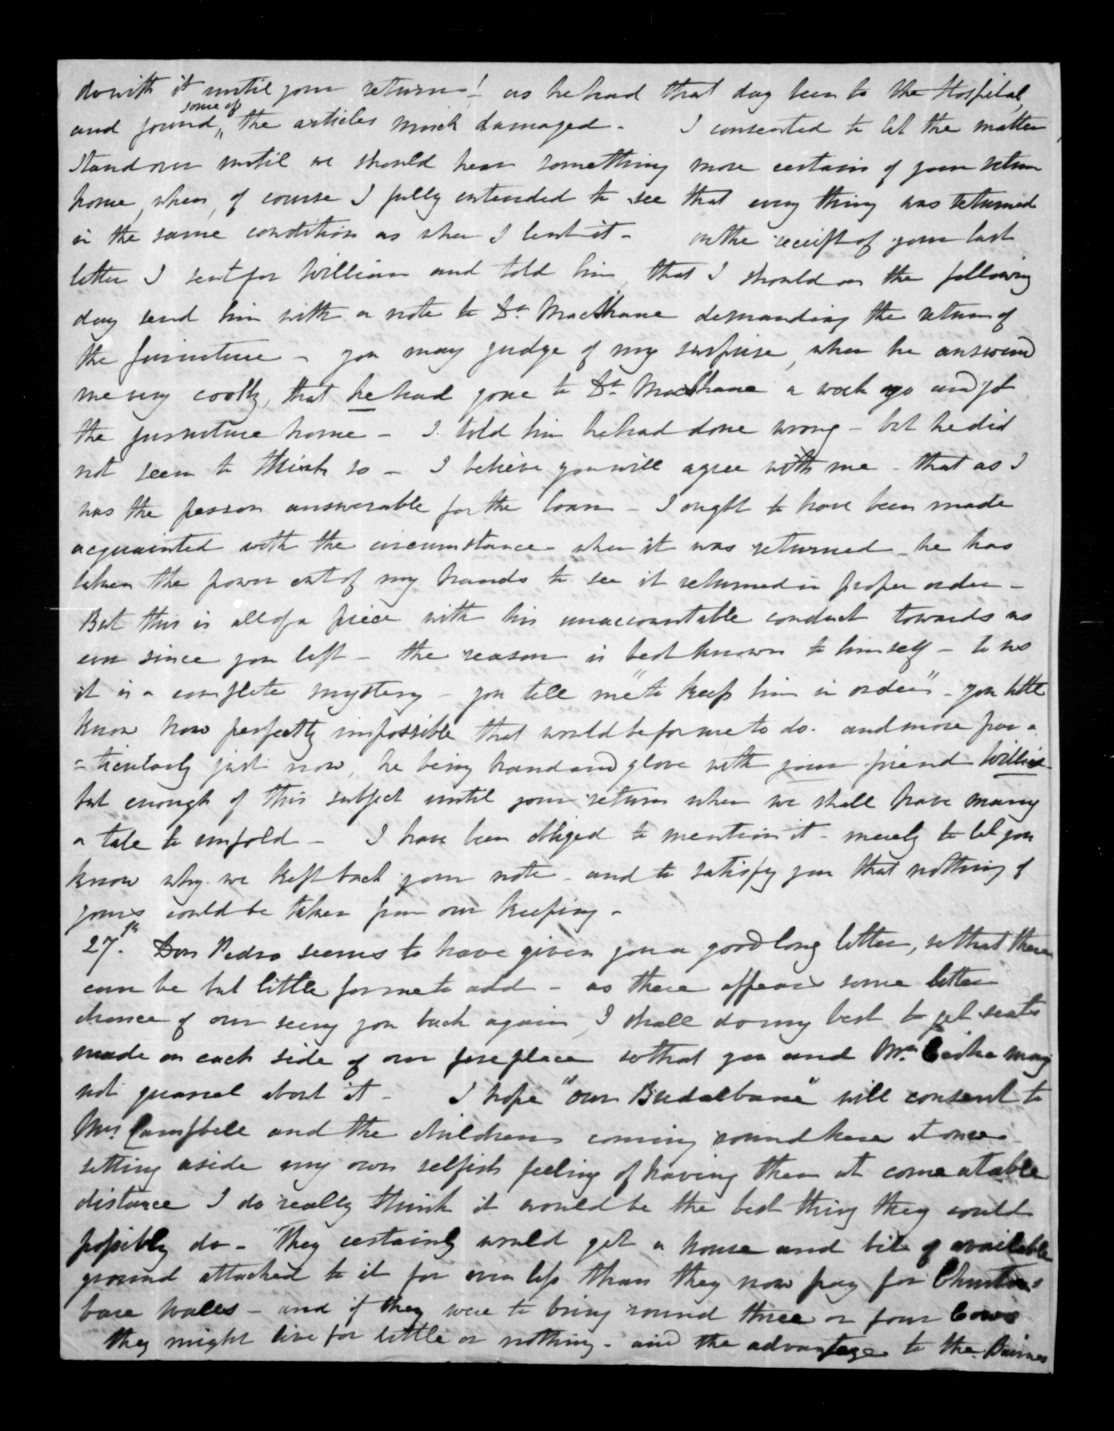 do with it until your return! as he had that day been to the Hospital,
and found some of the articles much damaged - I consented to let the matter
stand over until we should hear something more certain of your return
home, when, of course I fully intended to see that every thing was returned
in the same condition as when I lent it - on the receipt of your last
letter I sent for William and told him, that I should on the following
day send him with a note to Dr MacShane demanding the return of
the furniture - you may judge of my surprise, when he answered
me very coolly, that he had gone to Dr MacShane a week ago and got
the furniture home - I told him he had done wrong - but he did
not seem to think so - I believe you will agree with me - that as I
was the person answerable for the loan - I ought to have been made
acquainted with the circumstance when it was returned - he has
taken the power out of my hands to see it returned in proper order -
But this is all of a piece with his unaccountable conduct towards us
ever since you left - the reason is best known to himself - to us
it is a complete mystery - you tell me "to keep him in order" - you little
know how perfectly impossible that would be for me to do. and more par=
=ticularly just now, he being hand and glove with your friend
but enough of this subject until your return when we shall have many
a tale to unfold - I have been obliged to mention it - merely to let you
know why we kept back your note - and to satisfy you that nothing of
yours could be taken from our keeping -
27th. Don Pedro seems to have given you a good long letter, so that there
can be but little for me to add - as there appears some better
chance of our seeing you back again, I shall do my best to get seats
made on each side of our fireplace so that you and Mr may
not quarrel about it - I hope "our Bredalbane" will consent to
Mrs Campbell and the children coming round here at once -
setting aside my own selfish feeling of having them at come atable
distance I do really think it would be the best thing they could
possibly do - They certainly would get a house and bit of available
ground attached to it for even less than they now pay for
bare walls - and if they were to bring round three or four Cows
they might live for little or nothing - and the advantage to the Bairns